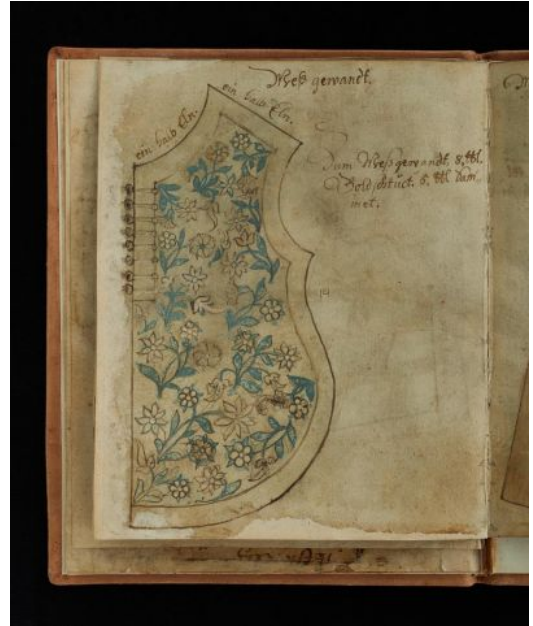 Meß gewandt.
ein halb Eln.
ein halb Eln.
Zum Meß gewandt. 8. Ell
Goldstuck. 6. Ell Dam
met.